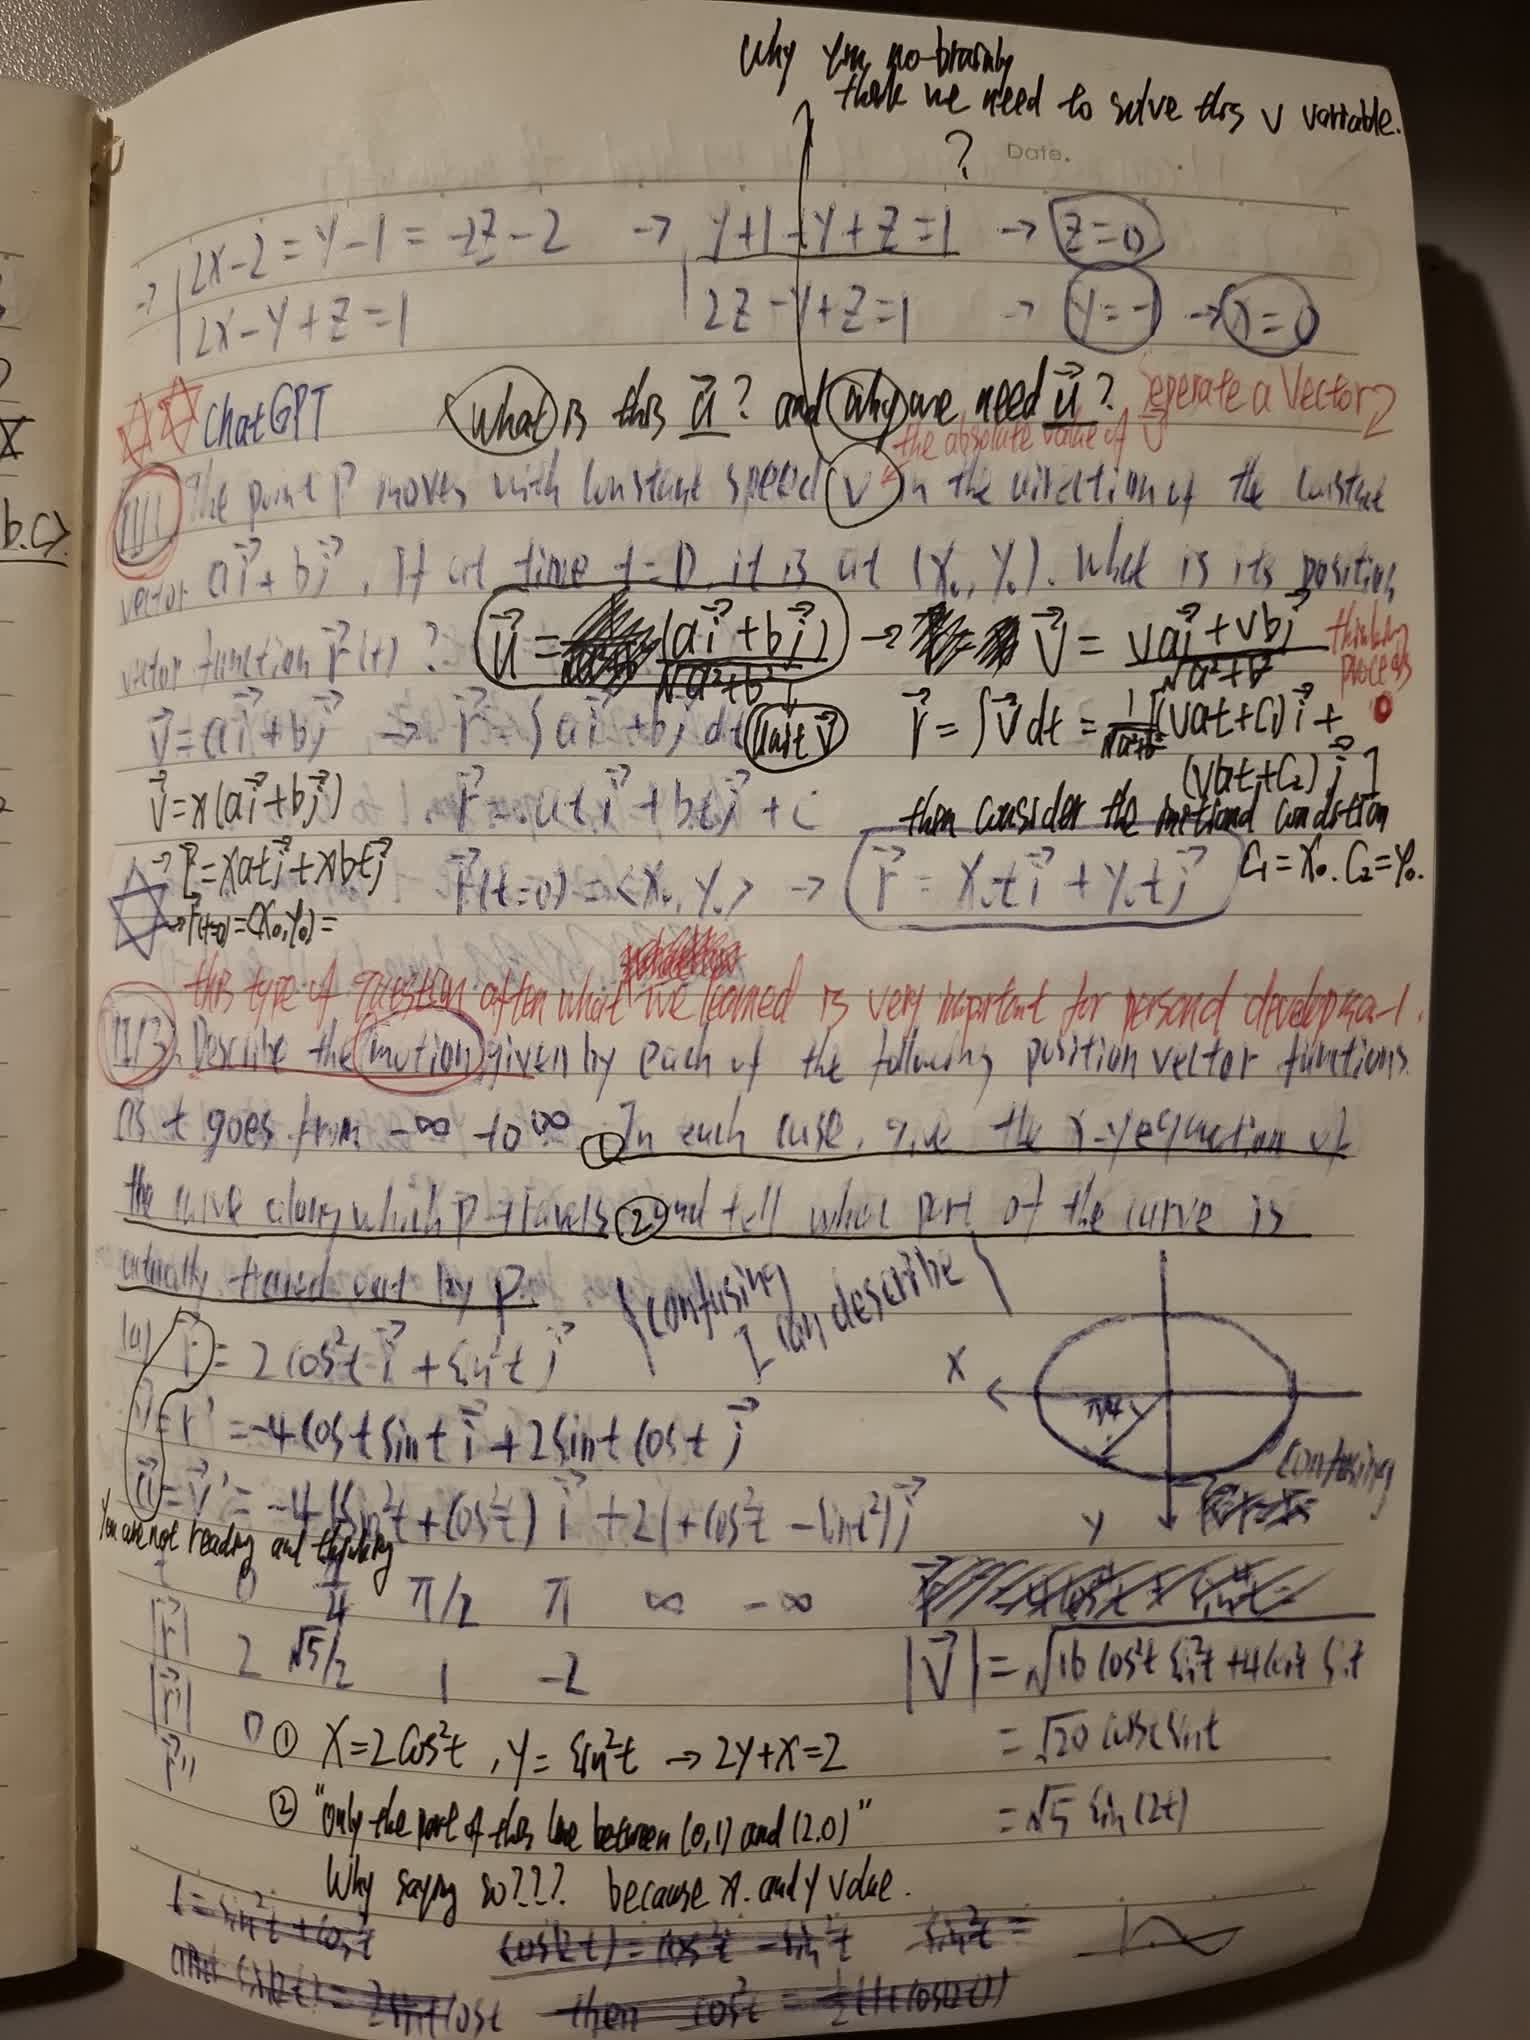 Why you no-brainly
think we need to solve this v variable.
?
Date.
→ 2x-2 = y-1 = -2z-2 → y+1-y+z=1 → z=0
2x-y+z=1 2z-y+z=1 → y=-1 → x=0
ChatGPT What is this u⃗? and why we need u⃗? Seperate a Vector 2
the absolute value of v⃗
II/1 The point P moves with constant speed v in the direction of the constant
vector ai⃗+bj⃗, If at time t=0, it is at (x₀, y₀). What is its position
vector function r⃗(t)?
u⃗ = (ai⃗+bj⃗)/√a²+b² → v⃗ = vai⃗+vbj⃗/√a²+b² thinking process
v⃗=ai⃗+bj⃗ → r⃗=∫ai⃗+bj⃗ dt unit v⃗ r⃗ = ∫v⃗dt = 1/√a²+b² [(vat+C₁)i⃗ +
(vbt+C₂)j⃗]
v⃗=x(ai⃗+bj⃗) r⃗=ati⃗+btj⃗+C then consider the condition
→ r⃗=xati⃗+xbtj⃗ r⃗(t=0)=<x₀,y₀> → r⃗ = x₀ti⃗+y₀tj⃗ C₁=x₀. C₂=y₀.
→ r(t=0)=<x₀,y₀)=
this type of question often what we learned is very important for personal development.
II/3 Describe the motion given by each of the following position vector functions
as t goes from -∞ to ∞. ① In each case, give the x-y equation of
the curve along which P travels ② and tell what part of the curve is
actually traced out by P.
confusing
I can describe
(a) r⃗ = 2cos²t i⃗ + sin²t j⃗
X
π/4
v⃗=r⃗' = -4cost sint i⃗ + 2sint cost j⃗
confusing
Y
a⃗=v⃗' = -4(-sin²t+cos²t) i⃗ + 2(+cos²t-sin²t) j⃗
You are not reading and thinking
t 0 π/4 π/2 π ∞ -∞
|r⃗| 2 √5/2 1 -2
|r⃗'| 0
r⃗''
|v⃗| = √16cos²t sin²t+4cos²t sin²t
= √20 cost sint
= √5 sin(2t)
① X=2cos²t, y=sin²t → 2y+x=2
② "only the part of this line between (0,1) and (2,0)"
Why saying so??? because x. and y value.
1=sin²t+cos²t cos(2t)=cos²t-sin²t sin²t=
and sin(2t)=2sint cost then cos²t=½(1+cos(2t))